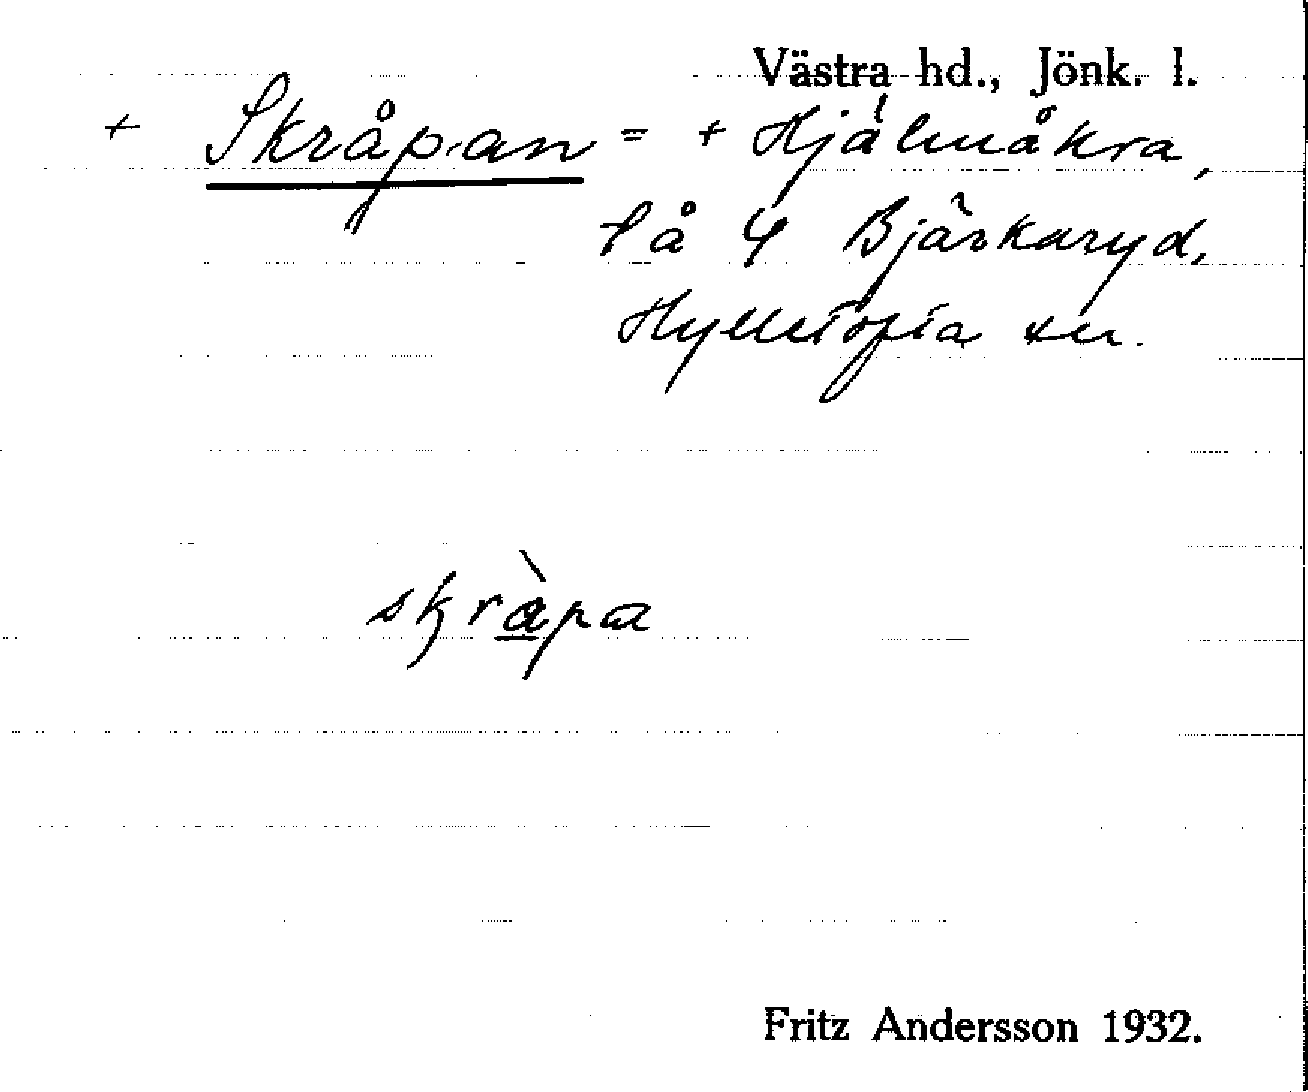 Västra hd., Jönk. l.
+ Skråpan = + Hjälmåkra,
på Bjärkaryd,
Hylletofta sn.
skràpa
Fritz Andersson 1932.